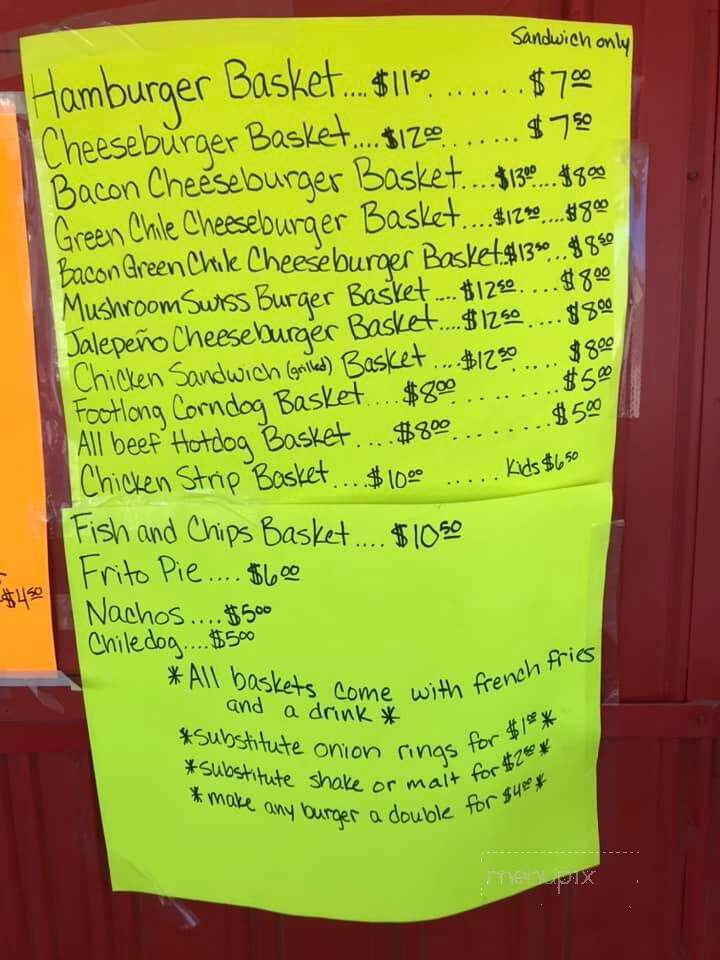 Sandwich only
Hamburger Basket.... $11⁵⁰ ...... $7⁰⁰
Cheeseburger Basket.... $12⁰⁰ ....... $7⁵⁰
Bacon Cheeseburger Basket.... $13⁰⁰.... $8⁰⁰
Green Chile Cheeseburger Basket.... $12⁵⁰.... $8⁰⁰
Bacon Green Chile Cheeseburger Basket.. $13⁵⁰... $8⁵⁰
Mushroom Swiss Burger Basket.... $12⁵⁰.... $8⁰⁰
Jalepeño Cheeseburger Basket.... $12⁵⁰.... $8⁰⁰
Chicken Sandwich (grilled) Basket .... $12⁵⁰ .... $8⁰⁰
Footlong Corndog Basket.... $8⁰⁰ ........ $5⁰⁰
All beef Hotdog Basket.... $8⁰⁰........ $5⁰⁰
Chicken Strip Basket.... $10⁰⁰ ..... Kids $6⁵⁰
Fish and Chips Basket.... $10⁵⁰
Frito Pie.... $6⁰⁰
$4⁵⁰
Nachos.... $5⁰⁰
Chiledog.... $5⁰⁰
*All baskets come with french fries
and a drink*
*substitute onion rings for $1⁰⁰*
*substitute shake or malt for $2⁰⁰*
*make any burger a double for $4⁰⁰*
menupix